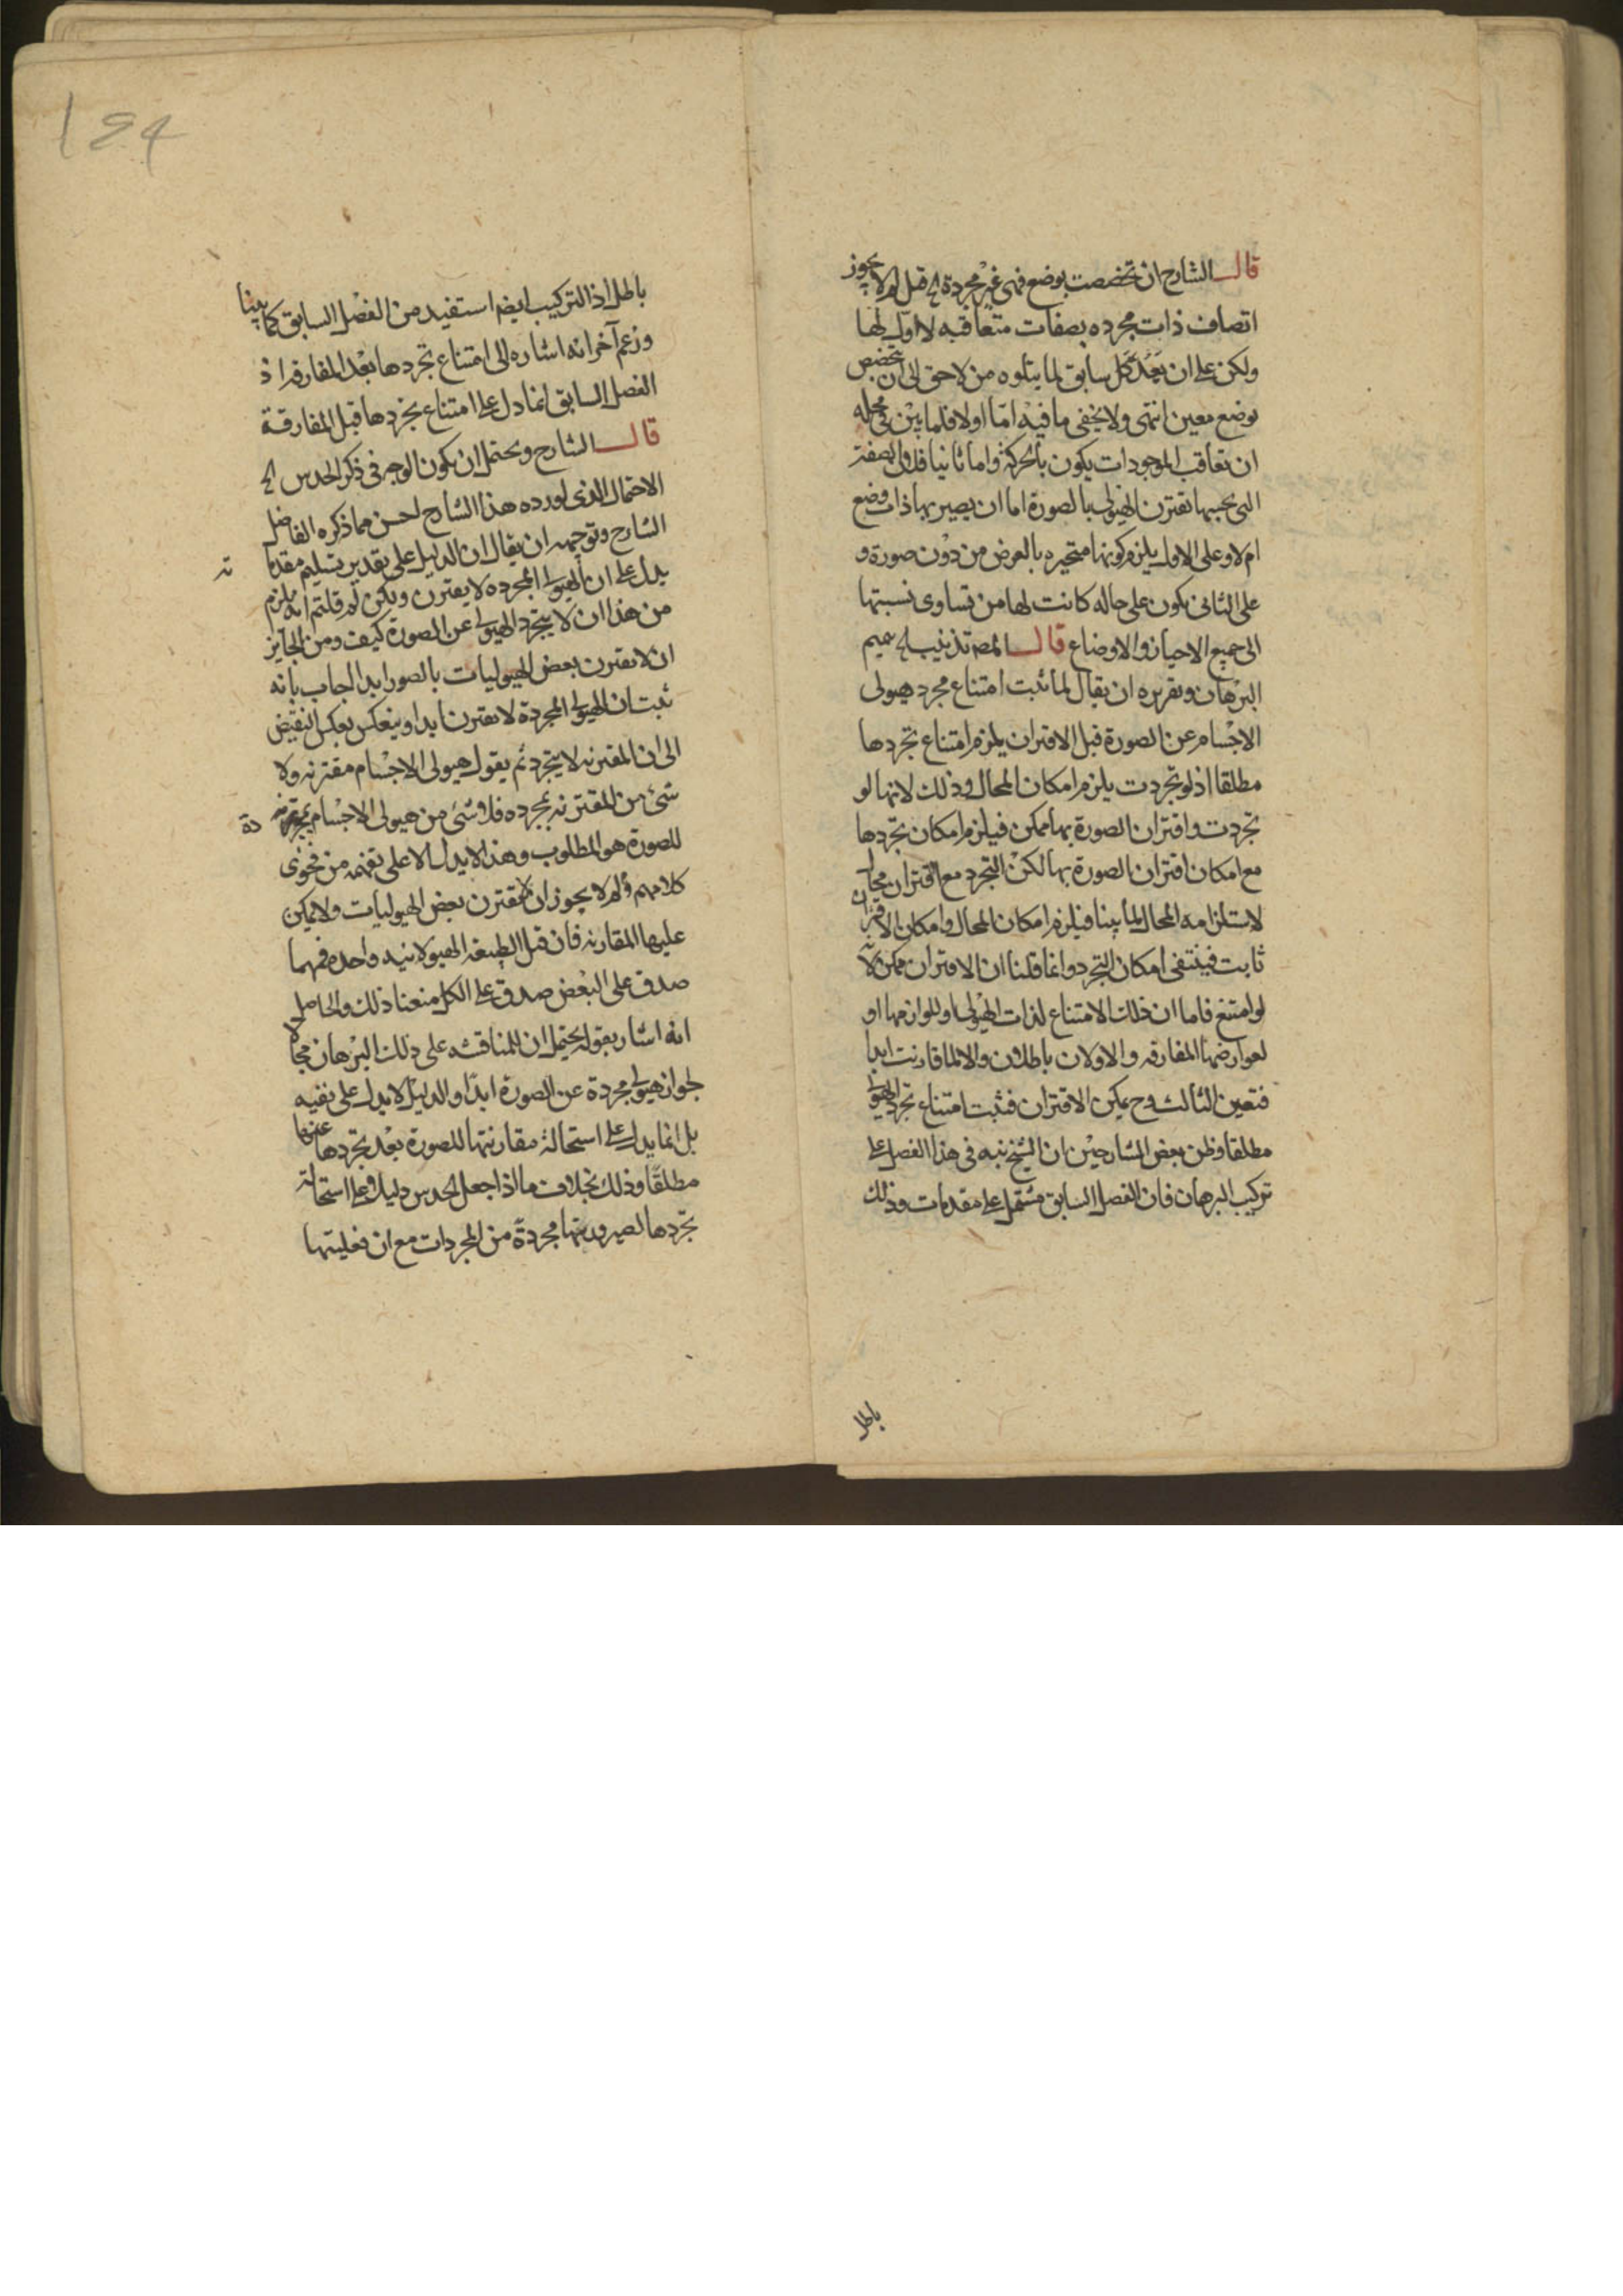 قال الشارح ان تخصصت بوضع فهى غير مجردة الخ قيل لم لا يجوز
اتصاف ذات مجرده بصفات متعاقبه لا اول لها
ولكن على ان يعد كل سابق لما يتلوه من لاحق الى ان يتخصص
بوضع معين انتهى ولا يخفى ما فيه اما اولا فلما بين فى محله
ان تعاقب الموجودات يكون بالحركة واما ثانيا فلان الصفة
التى بحسبها تقترن الهيولى بالصورة اما ان يصير بها ذات وضع
ام لا وعلى الاول يلزم كونها متحيزه بالعرض من دون صورة و
على الثانى يكون على حاله كانت لها من تساوى نسبتها
الى جميع الاحياز والاوضاع قال المصـ تذنيب الخ تتميم
البرهان وتقريره ان يقال لما ثبت امتناع تجرد هيولى
الاجسام عن الصورة قبل الاقتران يلزم امتناع تجردها
مطلقا اذ لو تجردت يلزم امكان المحال وذلك لانها لو
تجردت واقتران الصورة بها ممكن فيلزم امكان تجردها
مع امكان اقتران الصورة بها لكن التجرد مع اقتران محال
لاستلزامه المحال لما بينا فيلزم امكان المحال وامكان الاقتران
ثابت فينتفى امكان التجرد وانما قلنا ان الاقتران ممكن لانه
لو امتنع فاما ان ذلك الامتناع لذات الهيولى او للوازمها او
لعوارضها المفارقه والاولان باطلان والا لما قارنت ابدا
فتعين الثالث وح يمكن الاقتران فثبت امتناع تجرد الهيولى
مطلقا وظن بعض الشارحين ان الشيخ نبه فى هذا الفصل على
تركيب البرهان فان الفصل السابق مشتمل على مقدمات وذلك
باطل
١٥٤
باطل اذ التركيب ايضا استفيد من الفصل السابق كما بينا
وزعم آخر انه اشاره الى امتناع تجردها بعد المفارقه اذ
الفصل السابق انما دل على امتناع تجردها قبل المفارقة
قال الشارح ويحتمل ان يكون الوجه فى ذكر الحدس الخ
الاحتمال الذى اورده هذا الشارح احسن مما ذكره الفاضل
الشارح وتوجيهه ان يقال ان الدليل على تقدير تسليم مقدما ته
يدل على ان الهيولى المجرده لا يقترن ولكن لم قلتم انه يلزم
من هذا ان لا يتجرد الهيولى عن الصورة كيف ومن الجايز
ان لا يقترن بعض الهيوليات بالصور ابدا اجاب بانه
ثبت ان الهيولى المجردة لا تقترن ابدا وينعكس بعكس النقيض
الى ان المقترنه لا يتجرد ثم يقول هيولى الاجسام مقترنه ولا
شئ من المقترنه بمجرده فلا شئ من هيولى الاجسام بمجر دة
للصورة هو المطلوب وهذا لا يدل الا على تفهمه من فحوى
كلامهم ولم لا يجوز ان لا تقترن بعض الهيوليات ولا يمكن
عليها المقارنه فان قيل الطبيعة الهيولانيه واحده فمهما
صدق على البعض صدق على الكل منعنا ذلك والحاصل
انه اشار بقوله يحتمل ان للمناقشه على ذلك البرهان مجالا
لجواز هيولى مجردة عن الصورة ابدا والدليل لا يدل على نفيه
بل انما يدل على استحالة مقارنتها للصورة بعد تجردها عنها
مطلقا وذلك بخلاف ما اذا جعل الحدس دليلا على استحالة
تجردها لصيرورتها مجردة من المجردات مع ان فعليتها